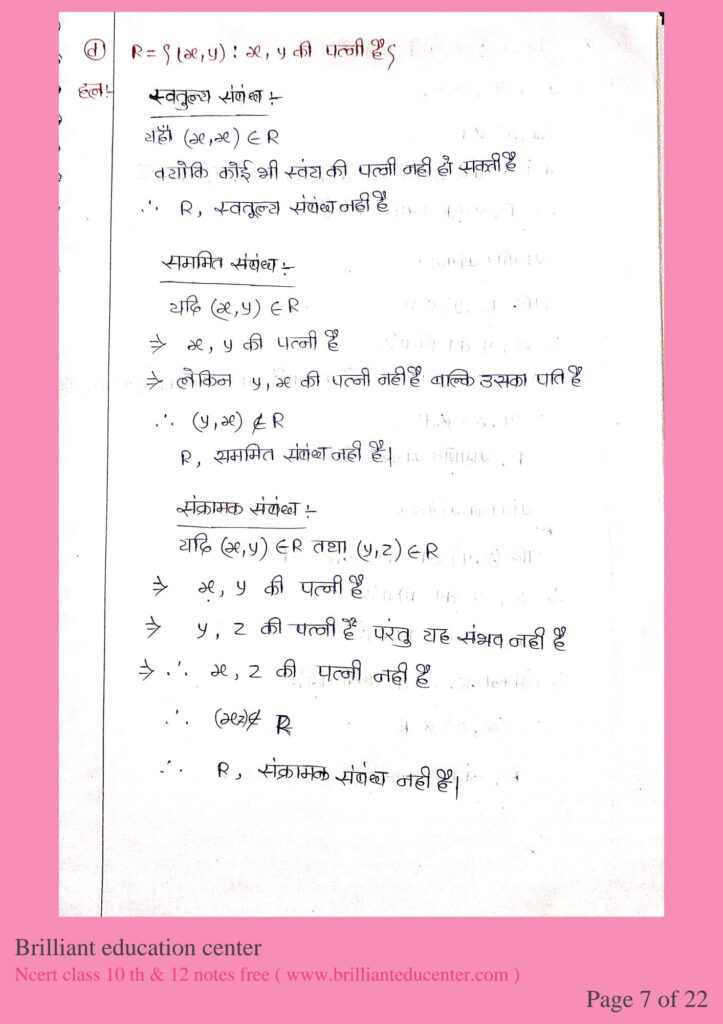 (d) R = { (x, y) : x, y की पत्नी है }
हल:-
स्वतुल्य संबंध :-
यहाँ (x, x) ∈ R
क्योकि कोई भी स्वंय की पत्नी नही हो सकती है
∴ R, स्वतुल्य संबंध नही है
सममित संबंध :-
यदि (x, y) ∈ R
⇒ x, y की पत्नी है
⇒ लेकिन y, x की पत्नी नही है बाल्कि उसका पति है
∴ (y, x) ∉ R
R, सममित संबंध नही है|
संक्रामक संबंध :-
यदि (x, y) ∈ R तथा (y, z) ∈ R
⇒ x, y की पत्नी है
⇒ y, z की पत्नी है परंतु यह संभव नही है
⇒ ∴ x, z की पत्नी नही है
∴ (x z) ∉ R
∴ R, संक्रामक संबंध नही है|
Brilliant education center
Ncert class 10 th & 12 notes free ( www.brillianteducenter.com )
Page 7 of 22